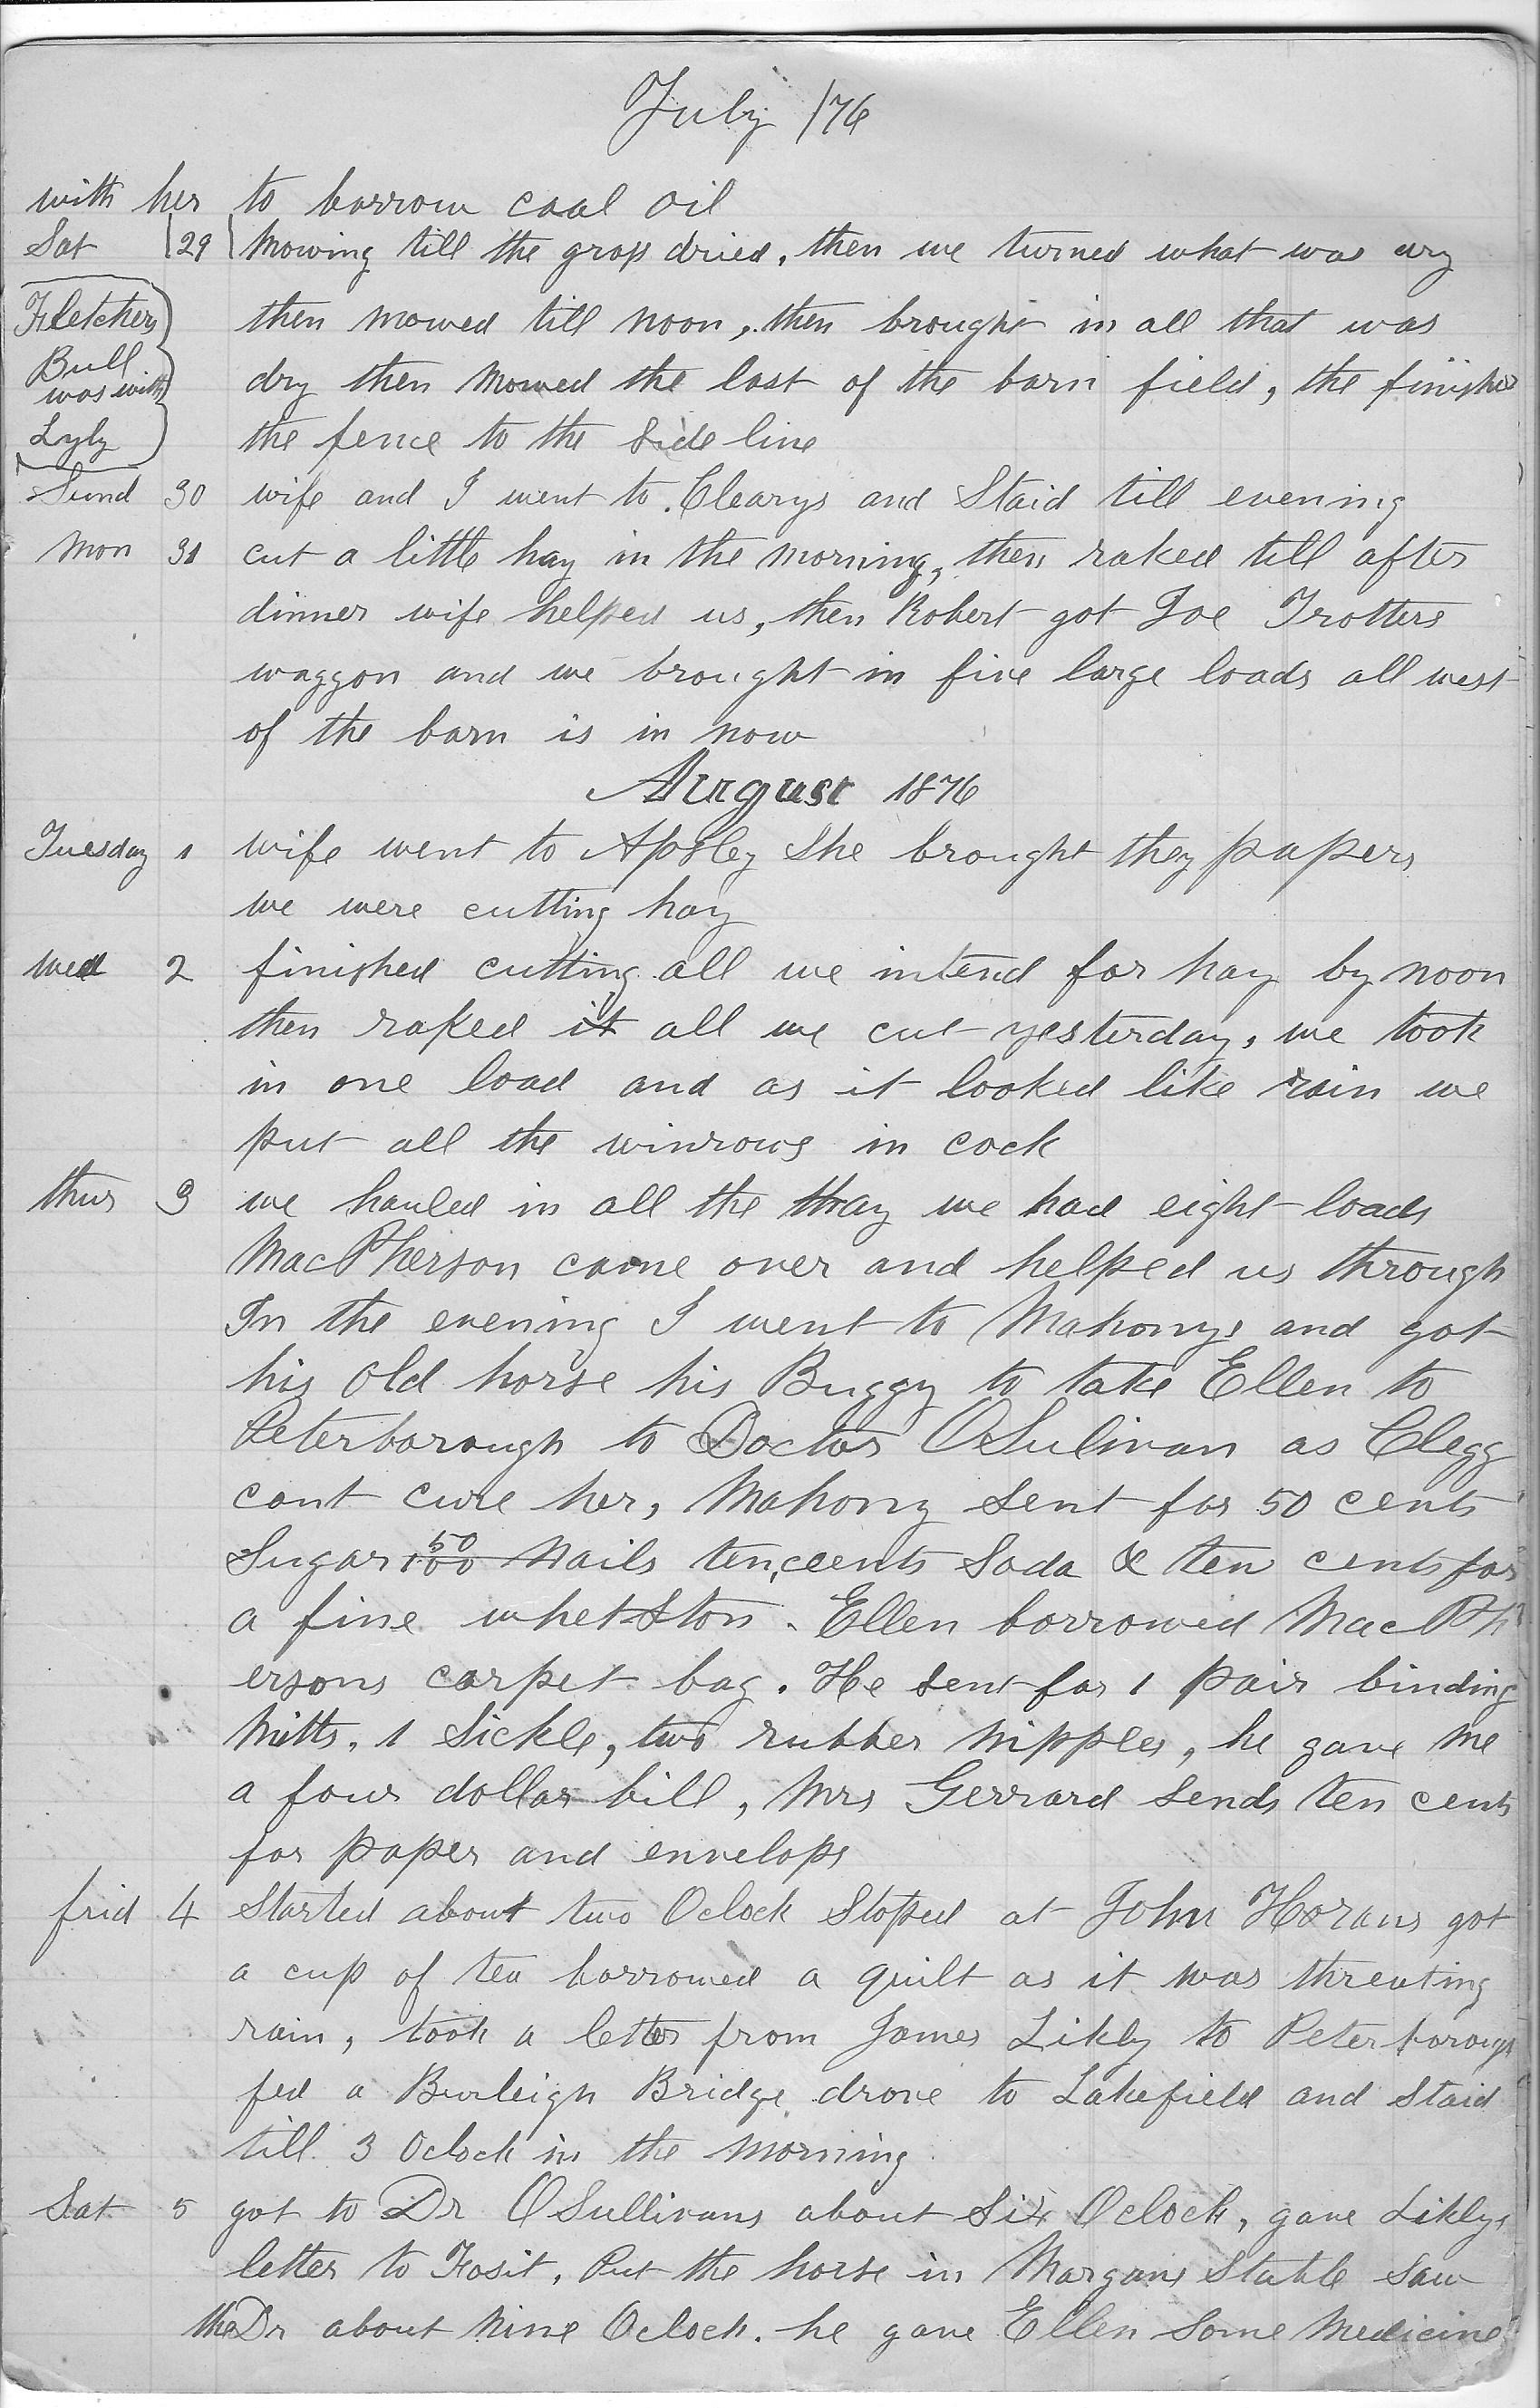 July /76
with her to borrow coal oil
Sat 29 Mowing till the grass dried, then we turned what was dry
Fletchers then mowed till noon, then brought in all that was
Bull was with dry then mowed the last of the barn field, the finished
Lyly the fence to the side line
Sund 30 wife and I went to Clearys and Staid till evening
Mon 31 cut a little hay in the morning, then raked till after
dinner wife helped us, then Robert got Joe Trotters
waggon and we brought in five large loads all west
of the barn is in now
August 1876
Tuesday 1 wife went to Apsley She brought they papers
we were cutting hay
wed 2 finished cutting all we intend for hay by noon
then raked it all we cut yesterday, we took
in one load and as it looked like rain we
put all the winrows in cock
thur 3 we hauled in all the hay we had eight loads
MacPherson came over and helped us through
In the evening I went to Mahonys and got
his old horse his Buggy to take Ellen to
Peterborough to Doctor OSulivan as Clegg
cant cure her, Mahony Sent for 50 cents
Sugar 100 50 Nails ten ceents Soda & ten cents for
a fine whetston. Ellen borrowed MacPh
ersons carpet bag. He Sent for 1 pair binding
Mitts, 1 Sickle, two rubber Nipples, he gave me
a four dollar bill, Mrs Gerrard Sends ten cents
for paper and envelops
frid 4 Started about two Oclock Stoped at John Horans got
a cup of tea borrowed a quilt as it was threating
rain, took a letter from James Likly to Peterboroug
fed a Burleigh Bridge drove to Lakefield and Staid
till 3 Oclock in the morning
Sat 5 got to Dr OSullivans about Six Oclock, gave Liklys
letter to Fosit, Put the horse in Morgans Stable Saw
the Dr about Nine Oclock. he gave Ellen Some Medicine